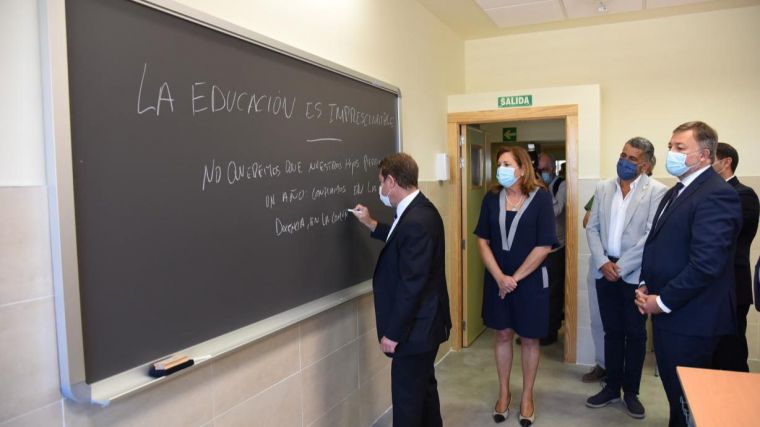 LA EDUCACIÓN ES IMPRESCINDIBLE
NO QUEREMOS QUE NUESTROS HIJOS PIERDAN
UN AÑO. CONFIAMOS EN LA
DOCENCIA, EN LA COM
SALIDA